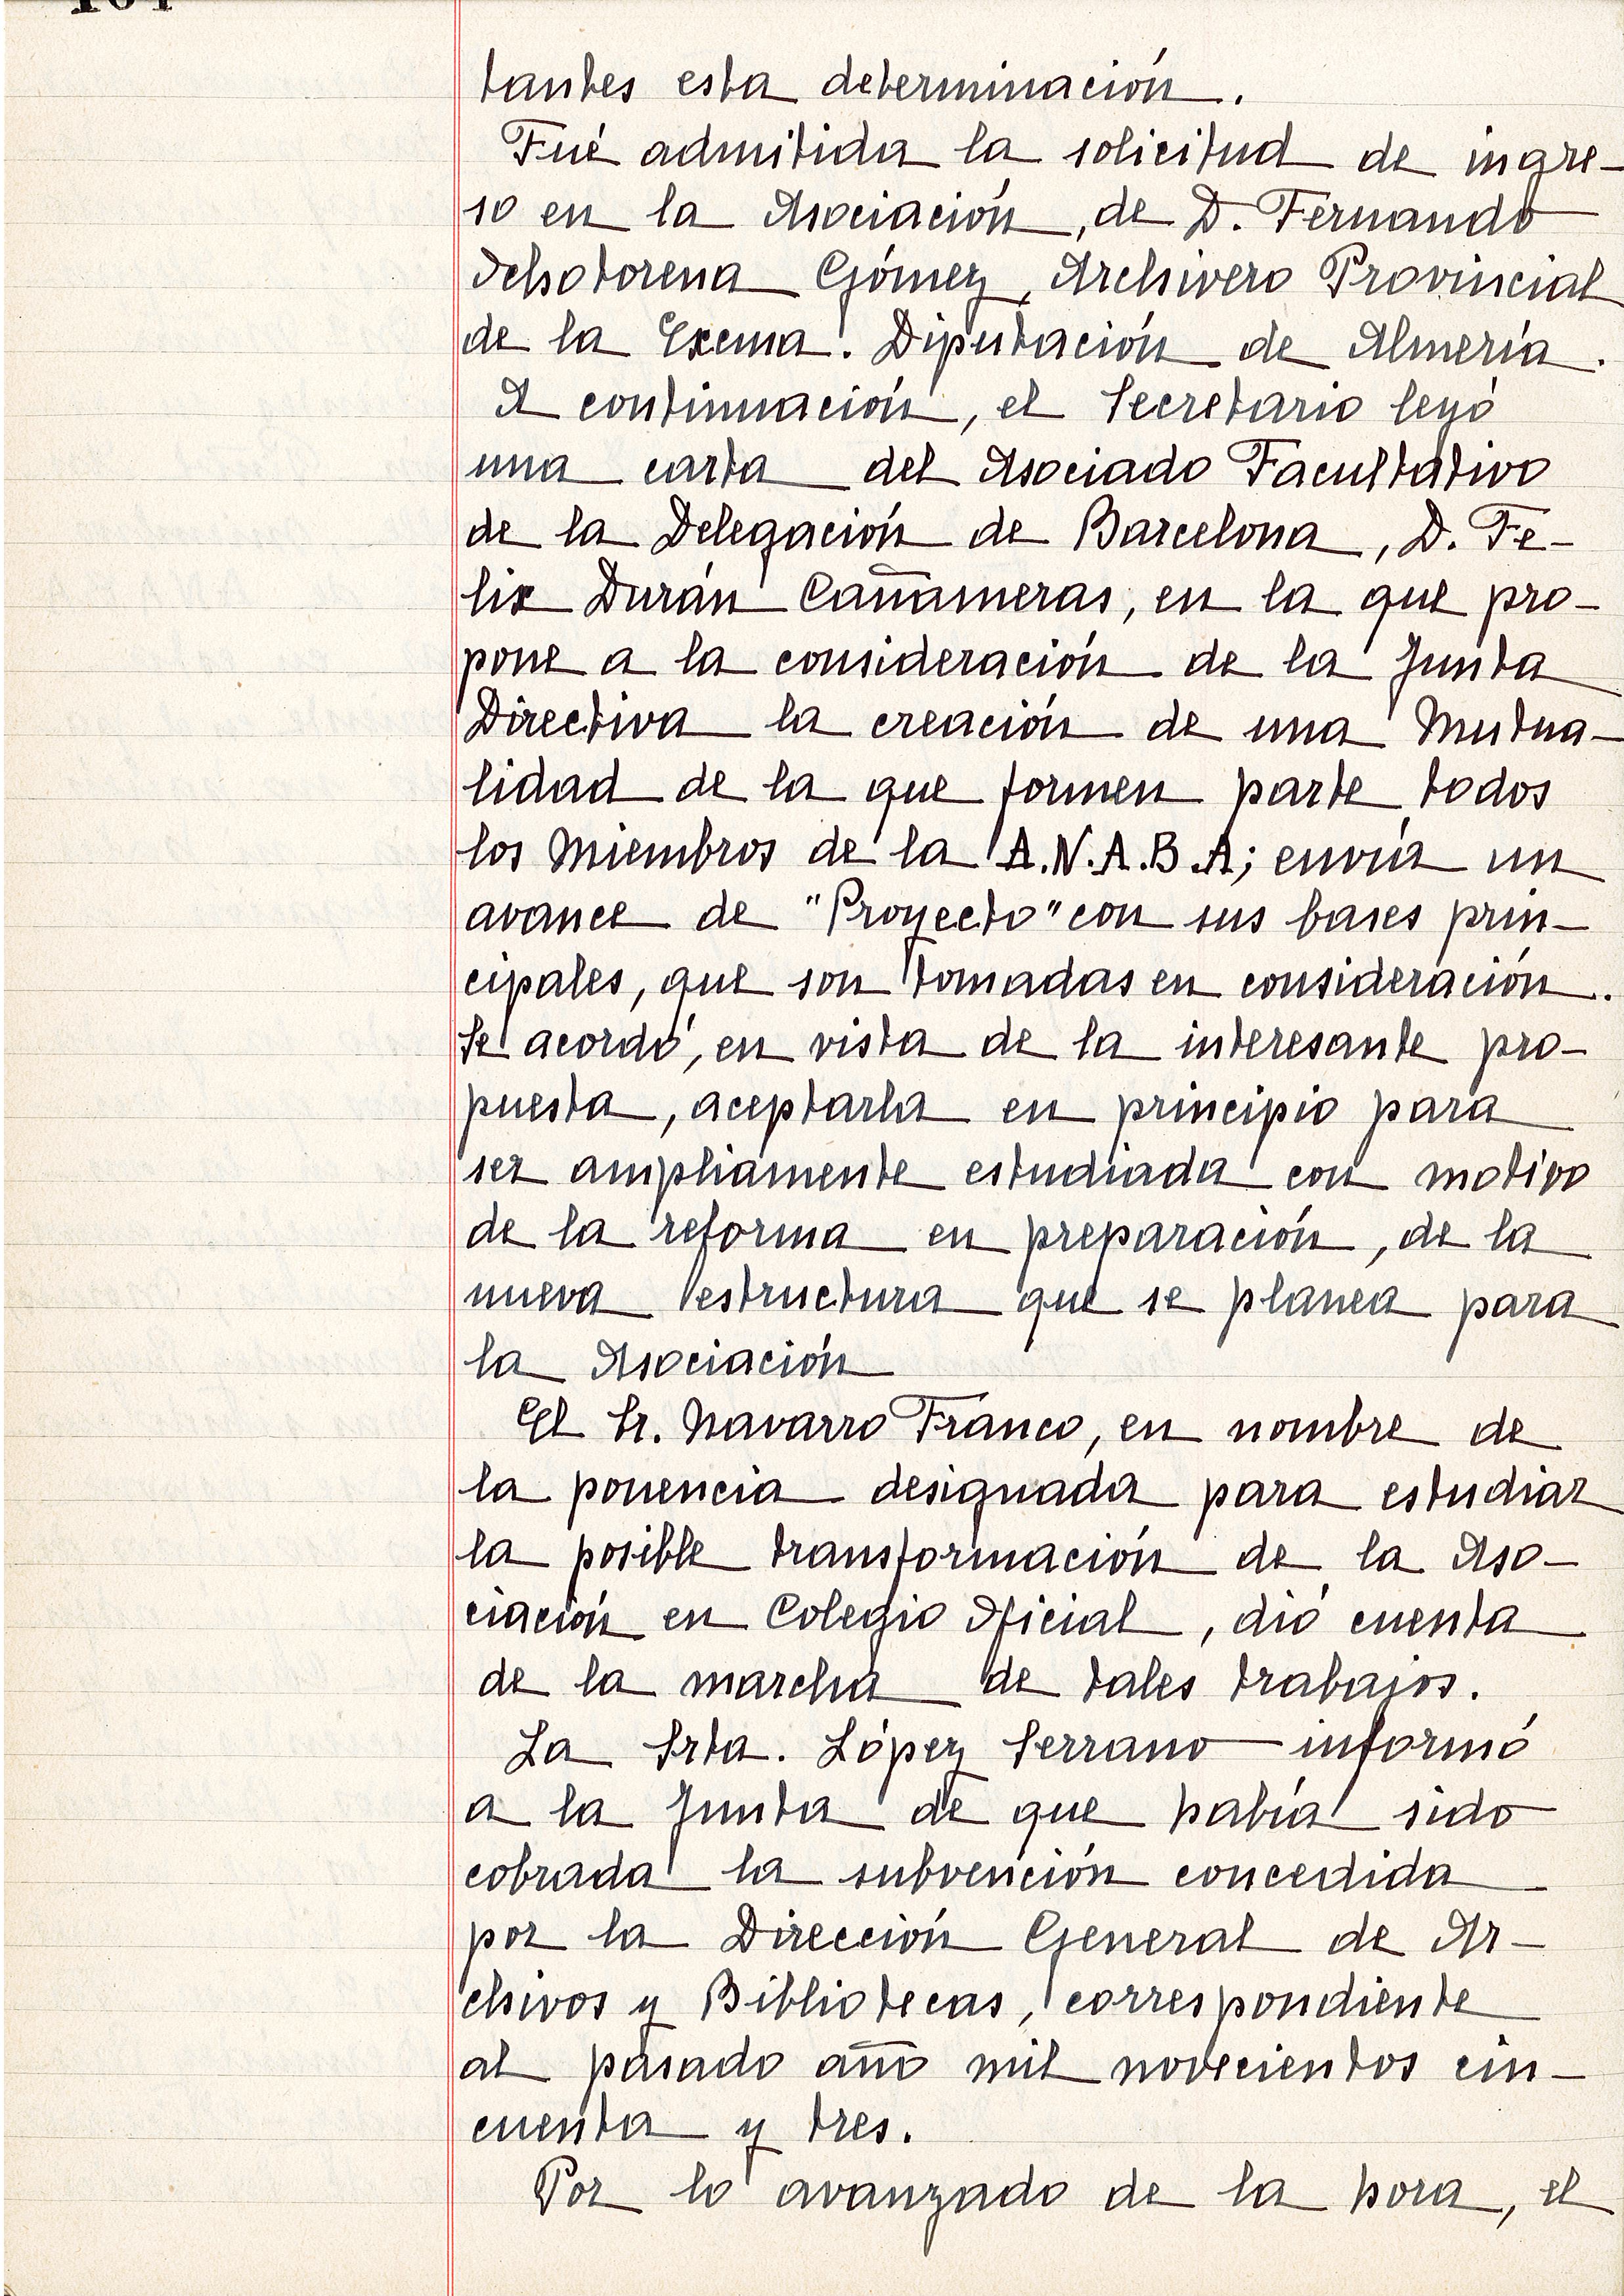 tantes esta determinación.
Fué admitida la solicitud de ingre-
so en la Asociación, de D. Fernando
Ochotorena Gómez, Archivero Provincial
de la Excma. Diputación de Almería.
A continuación, el Secretario leyó
una carta del Asociado Facultativo
de la Delegación de Barcelona, D. Fe-
lix Durán Cañameras, en la que pro-
pone a la consideración de la Junta
Directiva la creación de una Mutua-
lidad de la que formen parte todos
los Miembros de la A.N.A.B.A; envía un
avance de "Proyecto" con sus bases prin-
cipales, que son tomadas en consideración.
Se acordó, en vista de la interesante pro-
puesta, aceptarla en principio para
ser ampliamente estudiada con motivo
de la reforma en preparación, de la
nueva estructura que se planea para
la Asociación
El Sr. Navarro Franco, en nombre de
la ponencia designada para estudiar
la posible transformación de la Aso-
ciación en Colegio Oficial, dió cuenta
de la marcha de tales trabajos.
La Srta. López Serrano informó
a la Junta de que había sido
cobrada la subvención concedida
por la Dirección General de Ar-
chivos y Bibliotecas, correspondiente
al pasado año mil novecientos cin-
cuenta y tres.
Por lo avanzado de la hora, el